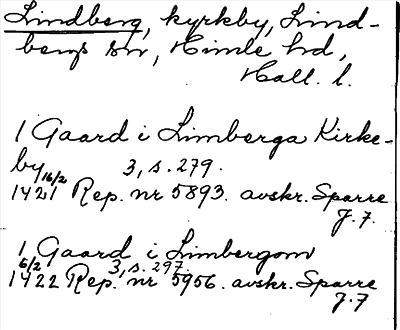 Lindberg, kyrkby, Lind-
bergs sn, Himle hd,
Hall. l.
1 Gaard i Limberga Kirke-
by 3, s. 279.
16/2
1421 Rep. nr 5893. avskr. Sparre
J. 7.
1 Gaard i Limbergom
6/2 3, s. 297.
1422 Rep. nr 5956. avskr. Sparre
J. 7